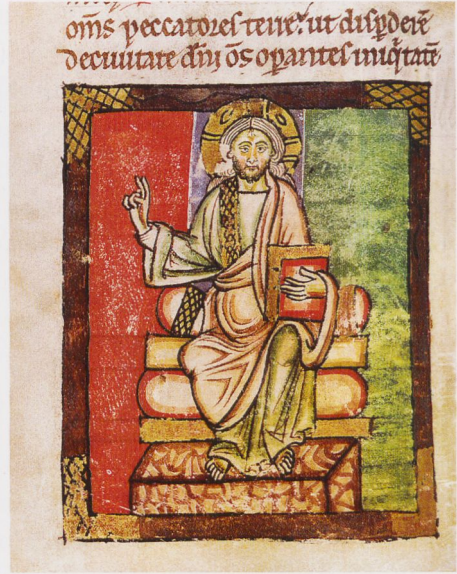 om̄s peccatores terre: ut disꝑderē
deciuitate dn̄i ōs oꝑantes iniq̇tatē